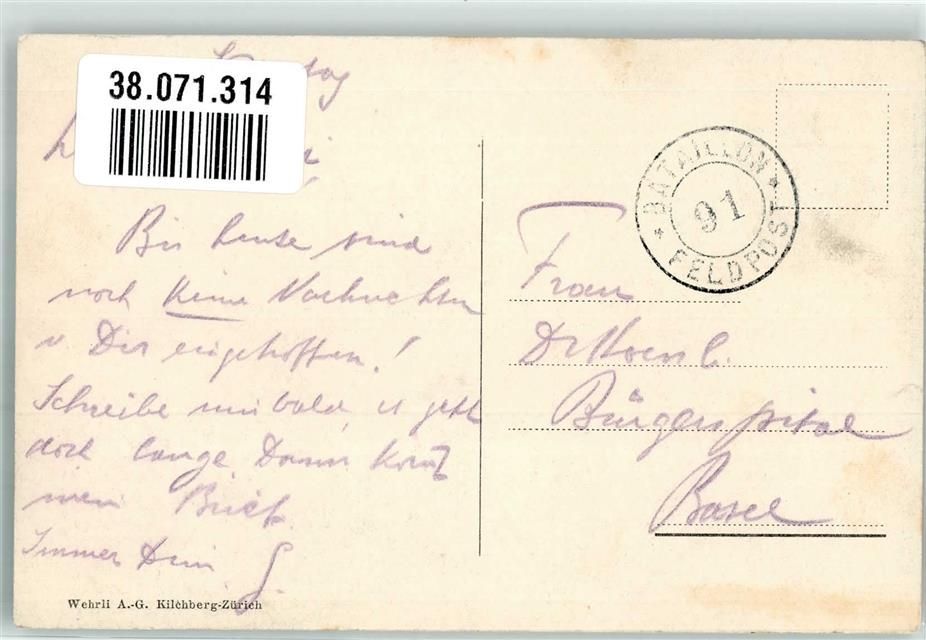 38.071.314
Bis heute sind
noch keine Nachrichten
v Dir eingetroffen!
Schreibe mir bald, es geht
doch lange. Dann kommt
mein Brief.
Immer Dein
Wehrli A.-G. Kilchberg-Zürich
BATAILLON
91
FELDPOST
Frau
Dr
Bürgerspital
Basel